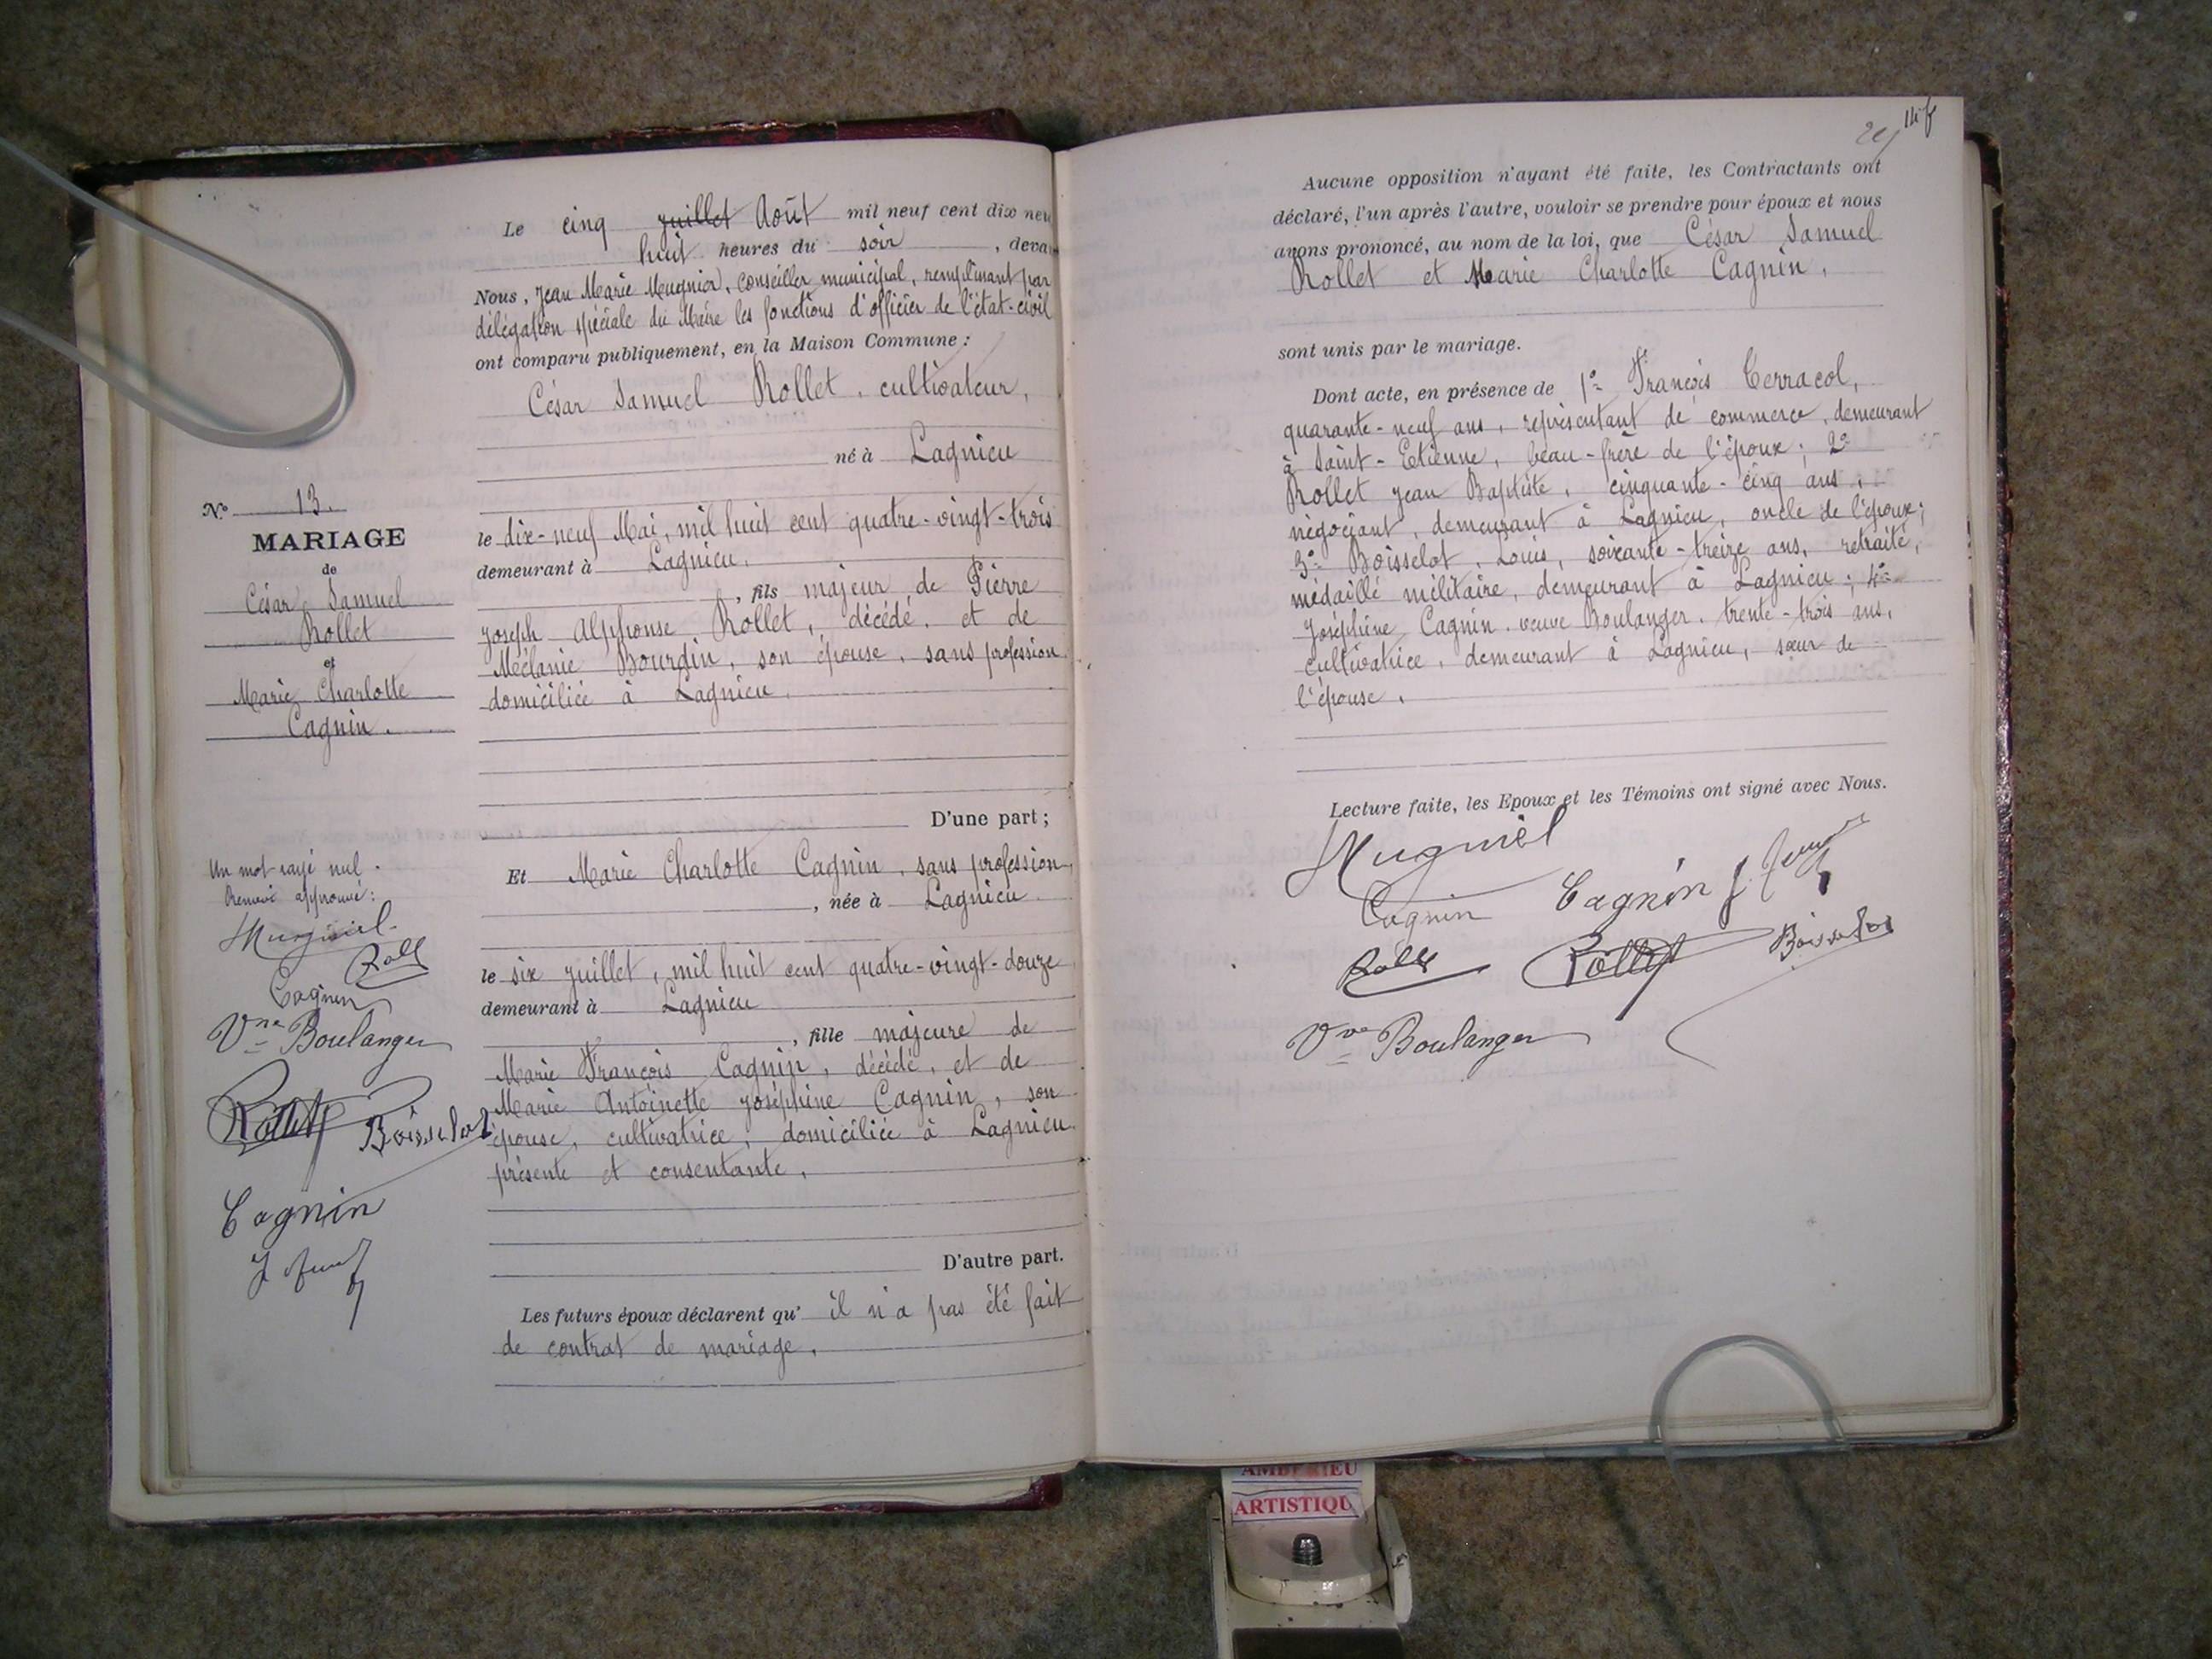 Le cinq juillet Août mil neuf cent dix neu
huit heures du soir , deva
Nous, Jean Marie Mugnier, conseiller municipal, remplissant par
délégation spéciale du Maire les fonctions d'officier de l'état-civil
ont comparu publiquement, en la Maison Commune :
César Samuel Rollet, cultivateur,
né à Lagnieu
le dix-neuf Mai, mil huit cent quatre-vingt-trois
demeurant à Lagnieu.
, fils majeur de Pierre
Joseph Alphonse Rollet, décédé, et de
Mélanie Bourdin, son épouse, sans profession
domiciliée à Lagnieu.
D'une part ;
Et Marie Charlotte Cagnin, sans profession,
, née à Lagnieu
le six juillet, mil huit cent quatre-vingt-douze
demeurant à Lagnieu
, fille majeure de
Marie François Cagnin, décédé, et de
Marie Antoinette Joséphine Cagnin, son
épouse, cultivatrice, domiciliée à Lagnieu
présente et consentante.
D'autre part.
Les futurs époux déclarent qu' il n'a pas été fait
de contrat de mariage.
N° 13.
MARIAGE
de
César Samuel
Rollet
et
Marie Charlotte
Cagnin.
Un mot rayé nul.
Renvoi approuvé :
Mugnier
Rollet
Cagnin
Vve Boulanger
Rollet
Boisselot
Cagnin
Aucune opposition n'ayant été faite, les Contractants ont
déclaré, l'un après l'autre, vouloir se prendre pour époux et nous
avons prononcé, au nom de la loi, que César Samuel
Rollet et Marie Charlotte Cagnin,
sont unis par le mariage.
Dont acte, en présence de 1° François Terracol,
quarante-neuf ans, représentant de commerce, demeurant
à Saint-Etienne, beau-frère de l'époux ; 2°
Rollet Jean Baptiste, cinquante-cinq ans,
négociant, demeurant à Lagnieu, oncle de l'époux ;
3° Boisselot, Louis, soixante-treize ans, retraité,
médaillé militaire, demeurant à Lagnieu ; 4°
Joséphine Cagnin, veuve Boulanger, trente-trois ans,
cultivatrice, demeurant à Lagnieu, sœur de
l'épouse.
Lecture faite, les Epoux et les Témoins ont signé avec Nous.
Mugnier
Cagnin Cagnin
Rollet Rollet Boisselot
Vve Boulanger
AMBERIEU
ARTISTIQU